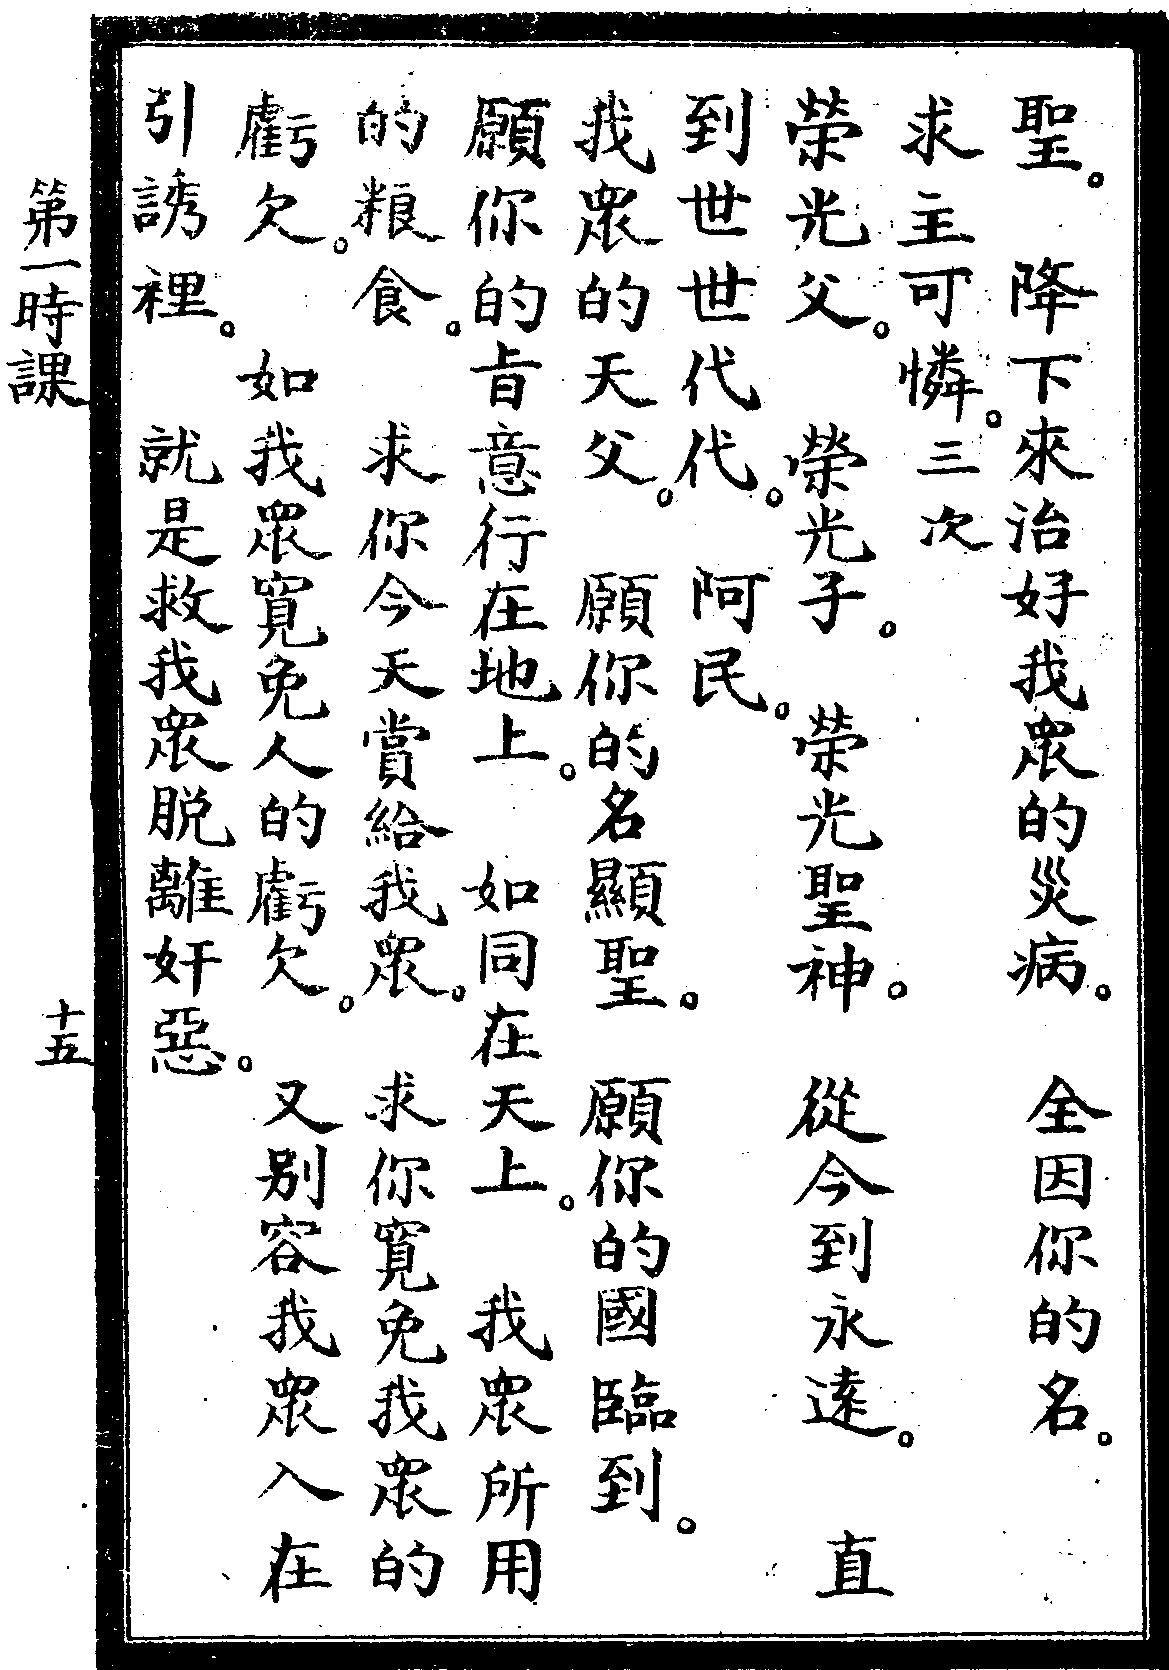 聖。　降下來治好我眾的災病。　全因你的名。
求主可憐。三次
榮光父。　榮光子。　榮光聖神。　從今到永遠。　直
到世世代代。　阿民。
我眾的天父。　願你的名顯聖。　願你的國臨到。
願你的旨意行在地上。　如同在天上。　我眾所用
的粮食。　求你今天賞給我眾。　求你寬免我眾的
虧欠。　如我眾寬免人的虧欠。　又别容我眾入在
引誘裡。　就是救我眾脱離奸惡。
第一時課　十五